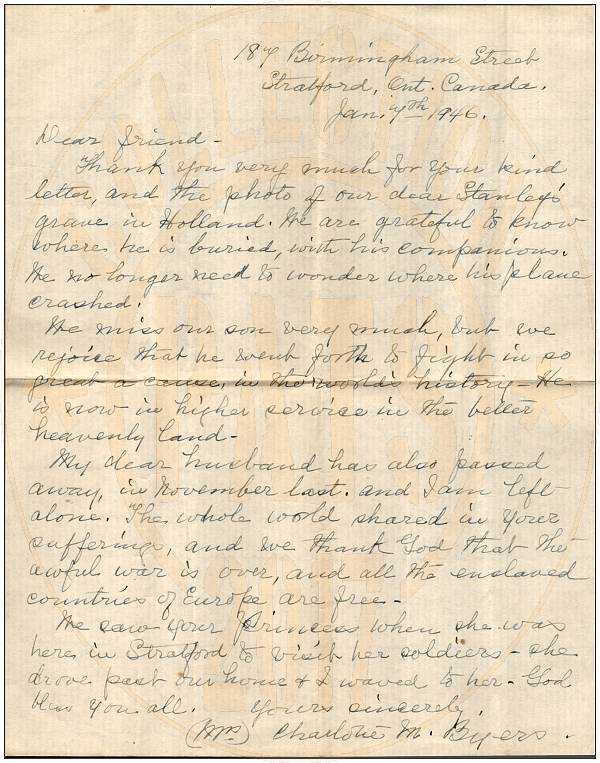 187 Birmingham Street
Stratford, Ont. Canada.
Jan. 7th 1946.
Dear friend -
Thank you very much for your kind
letter, and the photo of our dear Stanley's
grave in Holland. We are grateful to know
where he is buried, with his companions.
We no longer need to wonder where his plane
crashed.
We miss our son very much, but we
rejoice that he went forth to fight in so
great a cause, in the world's history - He
is now in higher service in the better
heavenly land -
My dear husband has also passed
away, in November last. and I am left
alone. The whole world shared in your
sufferings, and we thank God that the
awful war is over, and all the enslaved
countries of Europe are free -
We saw your Princess when she was
here in Stratford to visit her soldiers - she
drove past our home & I waved to her - God
bless you all. Yours sincerely,
(Mrs) Charlotte M. Byers.